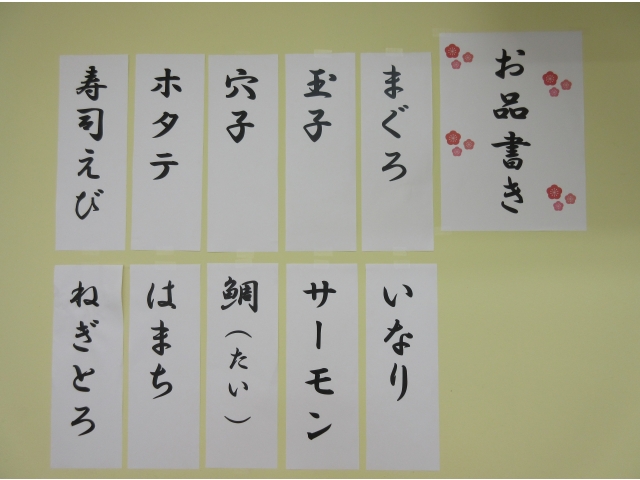 お品書き
まぐろ
玉子
穴子
ホタテ
寿司えび
いなり
サーモン
鯛（たい）
はまち
ねぎとろ